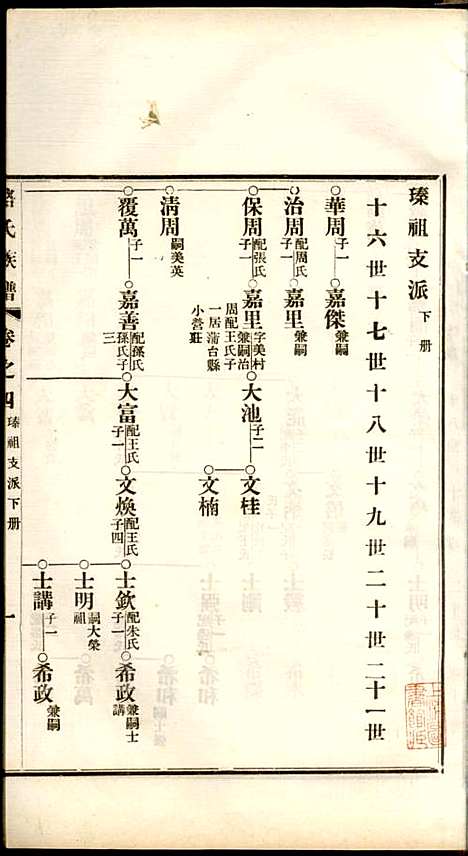 瑧祖支派下册
十六世十七世十八世十九世二十世二十一世
華周子一 嘉傑兼嗣
治周配周氏子一 嘉里兼嗣
保周配張氏子一 嘉里字美村兼嗣治周配王氏子一居蒲台縣小營莊 大池子二 文桂
文楠
清周嗣美英
覆萬子一 嘉善配孫氏孫氏子三 大富配王氏子一 文煥配王氏子四 士欽配朱氏子一 希政兼嗣士講
士明嗣大榮祖
士講子一 希政兼嗣
氏族譜 卷之四 瑧祖支派下册 一